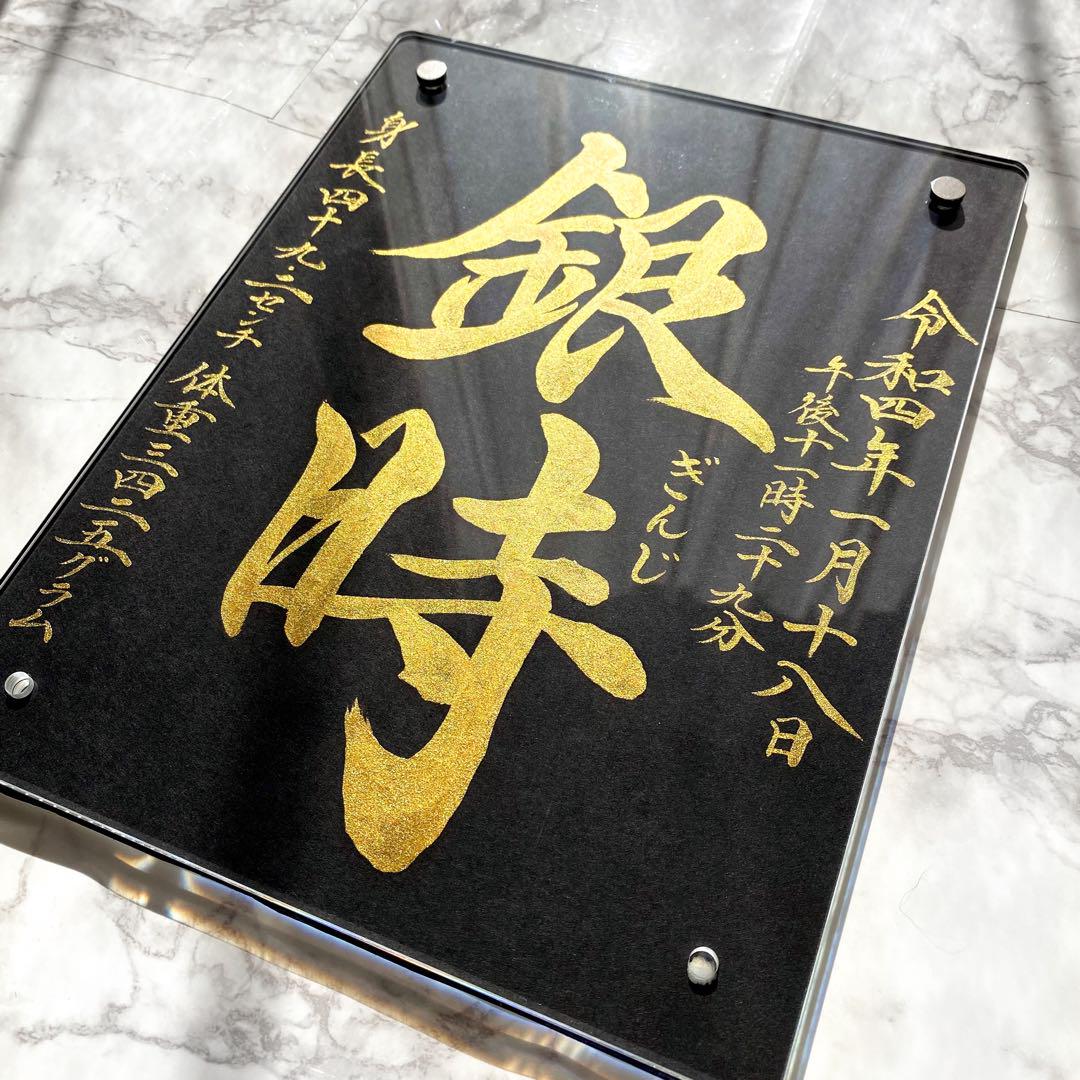 令和四年一月十八日
午後十一時二十九分
ぎんじ
銀時
身長四十九.三センチ 体重三四二五グラム